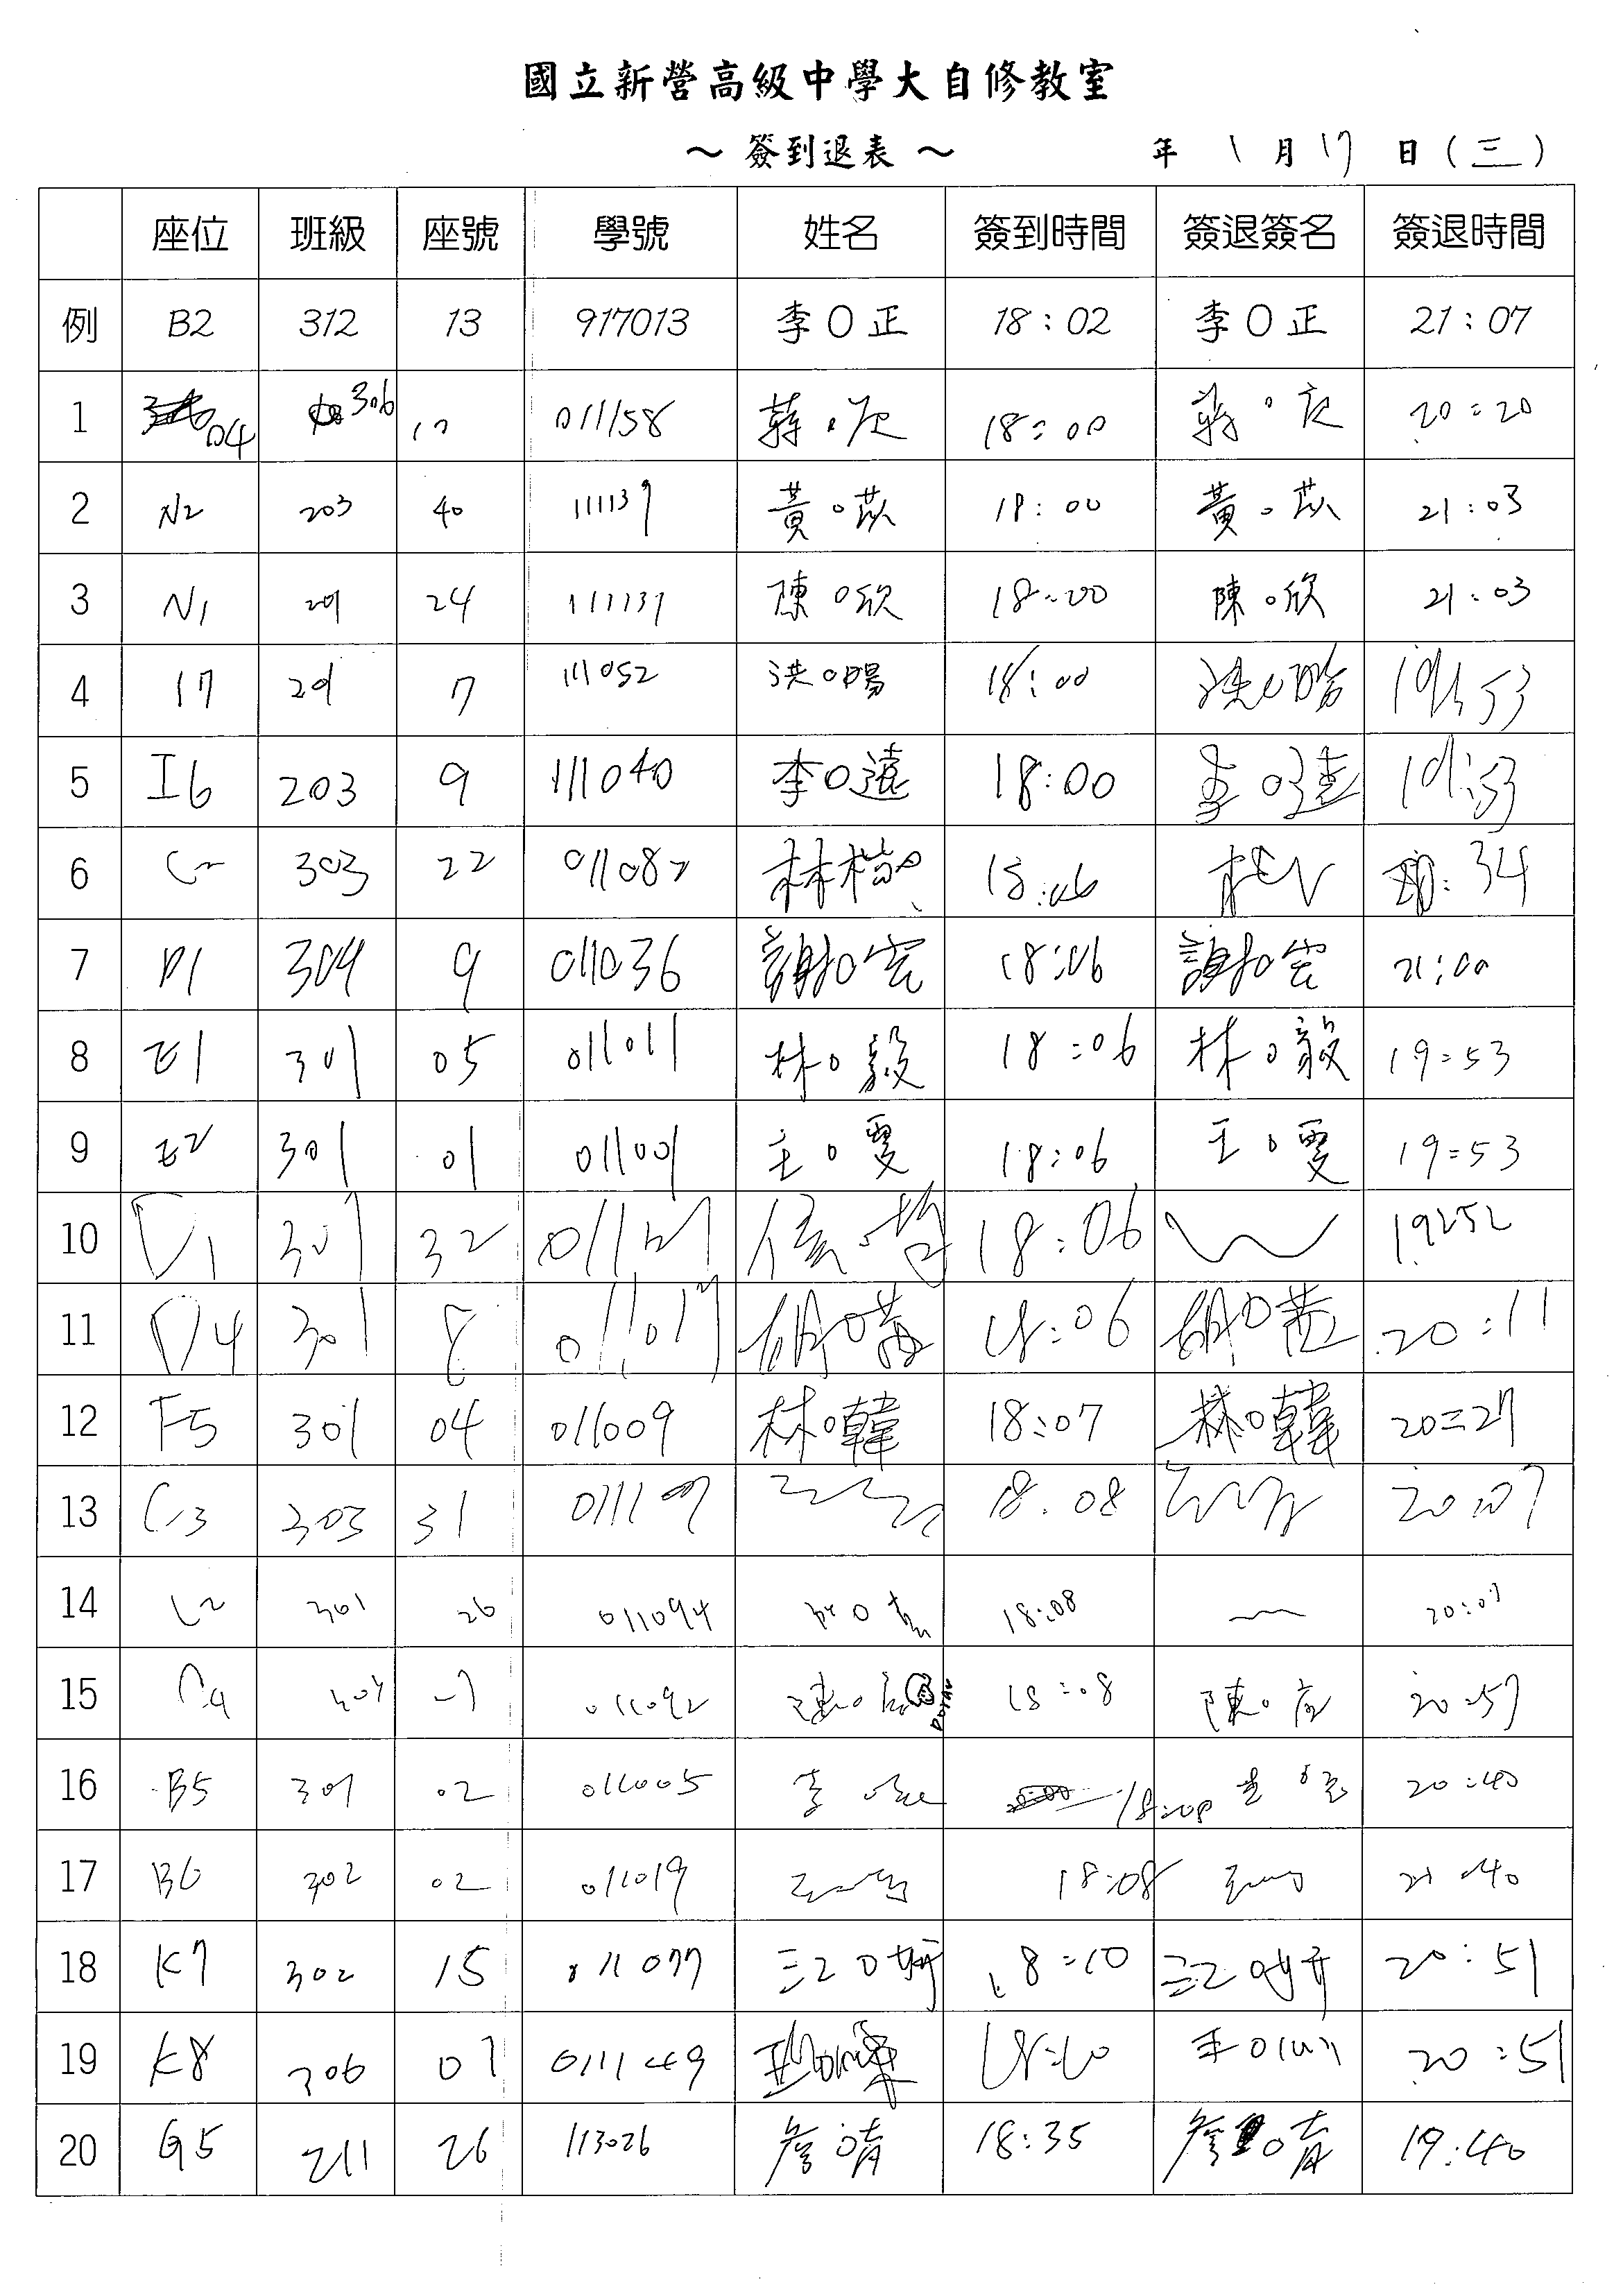 國立新營高級中學大自修教室
～ 簽到退表 ～ 年 1 月 17 日 (三)
座位 班級 座號 學號 姓名 簽到時間 簽退簽名 簽退時間
例 B2 312 13 917013 李O正 18:02 李O正 21:07
1 D4 306 17 011158 蔣O辰 18:00 蔣O辰 20:20
2 N2 203 40 111139 黃O苡 18:00 黃O苡 21:03
3 N1 201 24 111137 陳O欣 18:00 陳O欣 21:03
4 17 201 7 111052 洪O暘 18:00 19:53
5 I6 203 9 111040 李O遠 18:00 李O遠 19:53
6 303 22 011087 18:06 :34
7 D1 304 9 011036 謝O宏 18:06 謝O宏 21:00
8 E1 301 05 011011 林O毅 18:06 林O毅 19:53
9 E2 301 01 011001 王O雯 18:06 王O雯 19:53
10 301 32 18:06 19:52
11 D4 301 8 011017 18:06 20:11
12 F5 301 04 011009 林O韓 18:07 林O韓 20:27
13 C3 303 31 18:08 20:07
14 301 26 011094 18:08 20:07
15 C4 011092 陳O 18:08 陳O 20:57
16 B5 301 02 011005 李O 18:08 20:40
17 B6 302 02 011019 18:08 21:40
18 K7 302 15 011077 江O 18:10 江O 20:51
19 K8 306 07 011149 18:10 王O 20:51
20 G5 211 26 113026 詹O晴 18:35 詹O晴 19:40